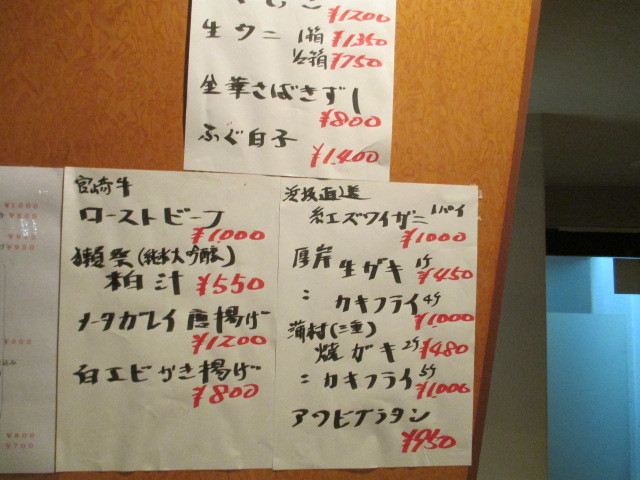 ¥1200
生ウニ 1箱 ¥1350
½箱 ¥750
生華さばきずし
¥800
ふぐ白子
¥1,400
宮崎牛
ローストビーフ
¥1,000
獺祭(純米大吟醸)
粕汁 ¥550
ナメタガレイ唐揚げ
¥1200
白エビかき揚げ
¥800
浜坂直送
紅ズワイガニ 1パイ
¥1000
厚岸 生ガキ 1ケ ¥450
〃 カキフライ 4ケ
¥1000
浦村(三重)
焼ガキ 2ケ ¥480
〃 カキフライ 5ケ
¥1,000
アワビグラタン
¥950
¥800
¥700